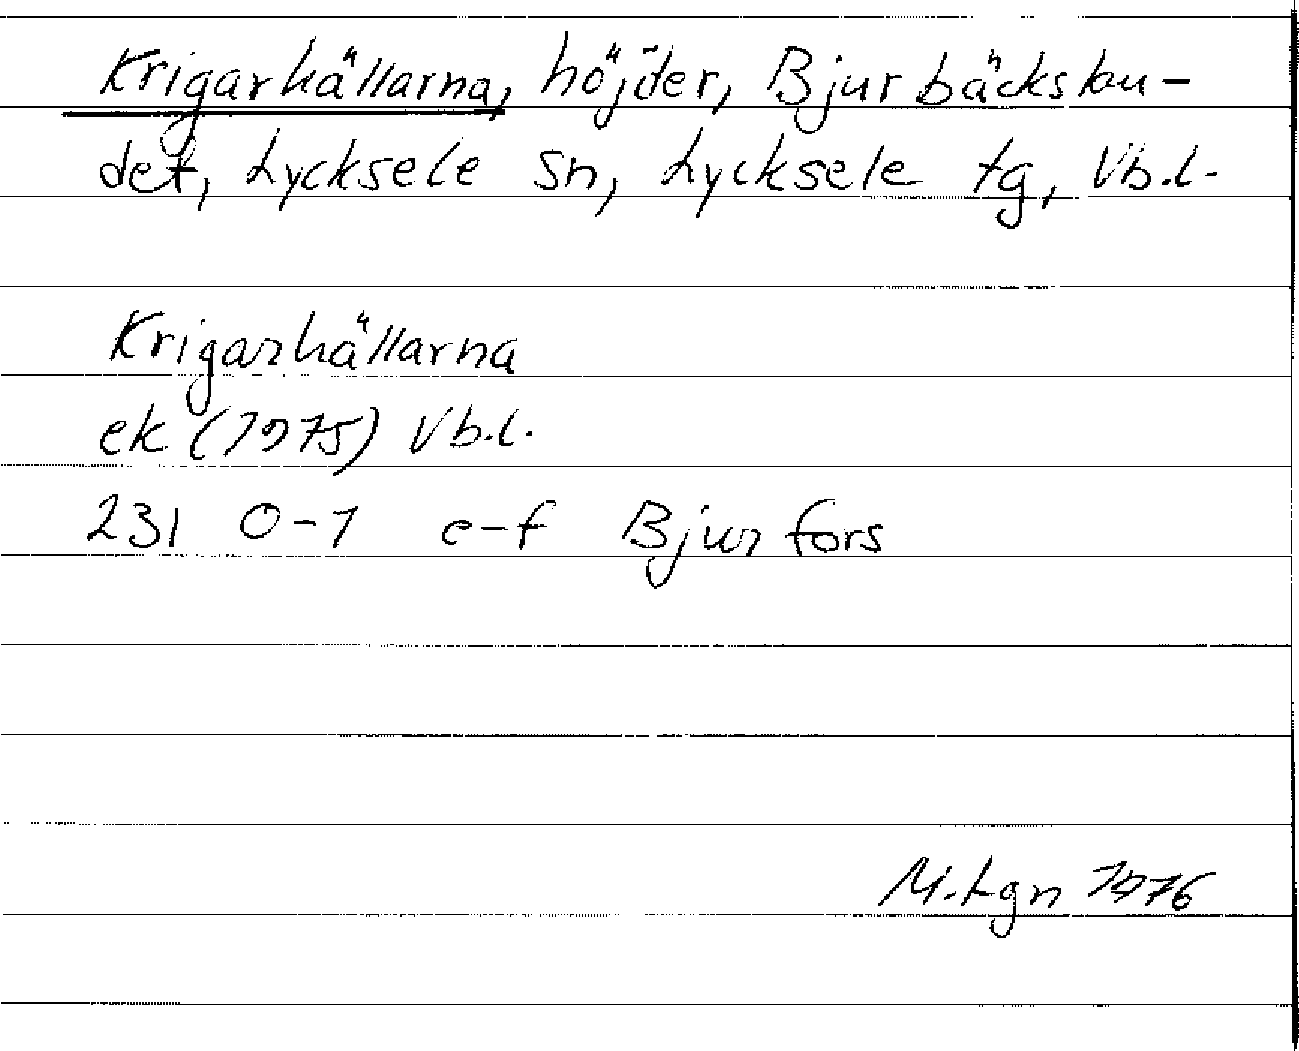 Krigarhällarna, höjder, Bjurbäckslan-
det, Lycksele sn, Lycksele tg, Vb.l.
Krigarhällarna
ek (1975) Vb.l.
231 0-1 e-f Bjurfors
M. Lgn 1976